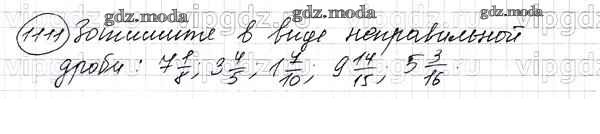 gdz.moda gdz.moda gdz.moda
1111 Запишите в виде неправильной
дроби: 7 1/8, 3 4/5, 1 7/10; 9 14/15, 5 3/16.